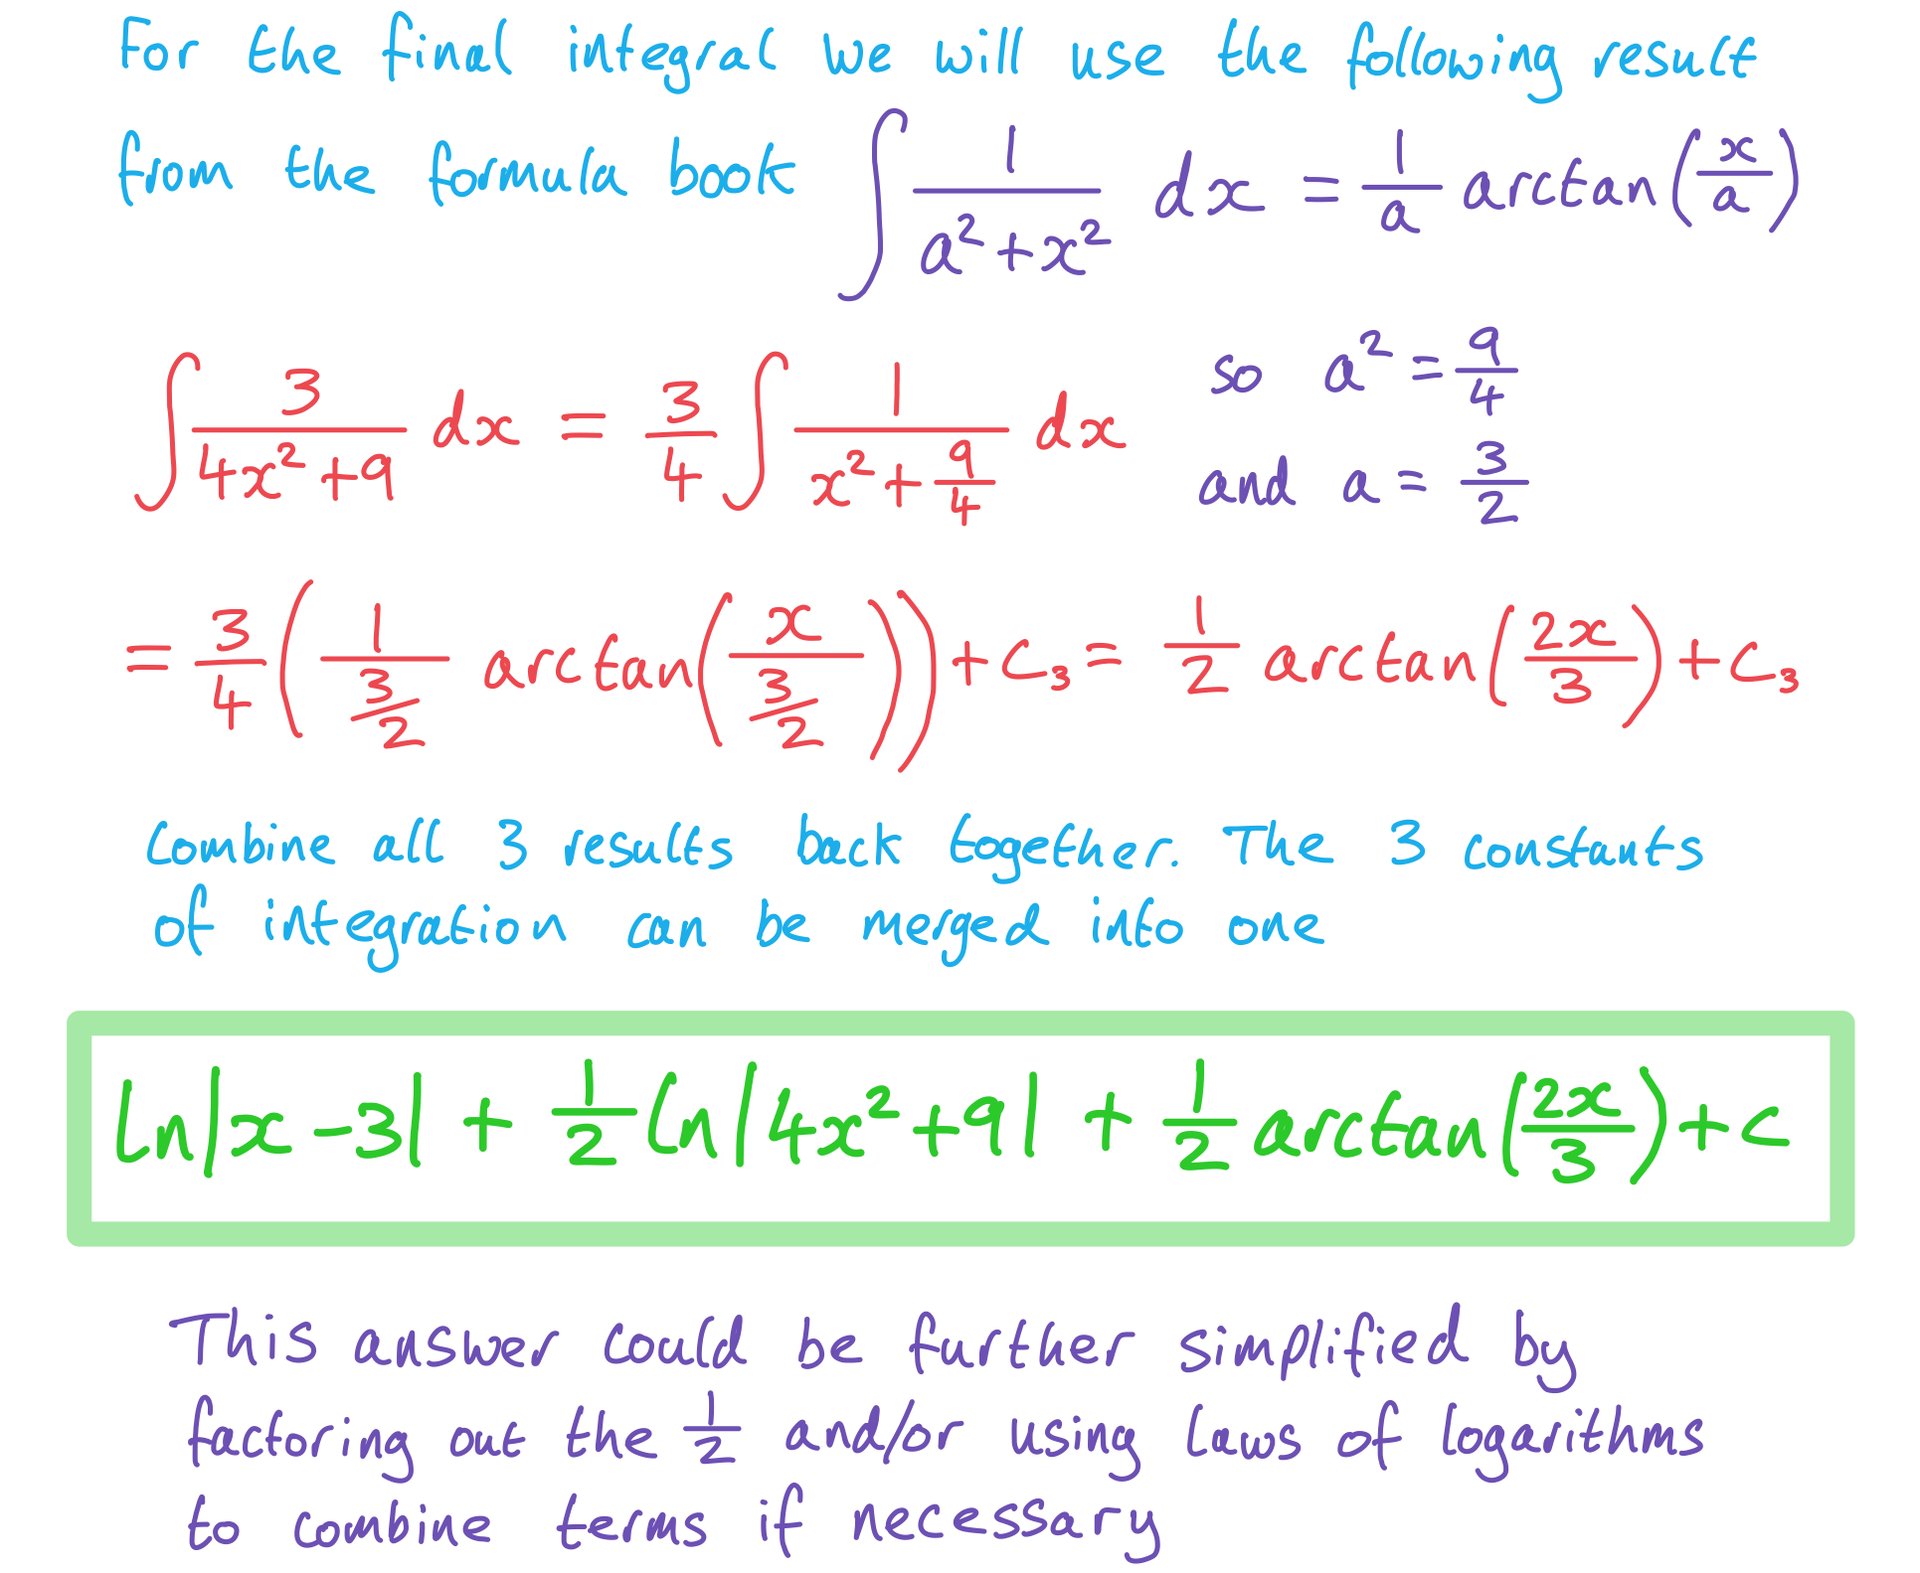 For the final integral we will use the following result
from the formula book ∫ 1/(a²+x²) dx = 1/a arctan(x/a)
∫ 3/(4x²+9) dx = 3/4 ∫ 1/(x²+9/4) dx so a² = 9/4
and a = 3/2
= 3/4 (1/(3/2) arctan(x/(3/2))) + c₃ = 1/2 arctan(2x/3) + c₃
Combine all 3 results back together. The 3 constants
of integration can be merged into one
ln|x-3| + 1/2 ln|4x²+9| + 1/2 arctan(2x/3) + c
This answer could be further simplified by
factoring out the 1/2 and/or using laws of logarithms
to combine terms if necessary